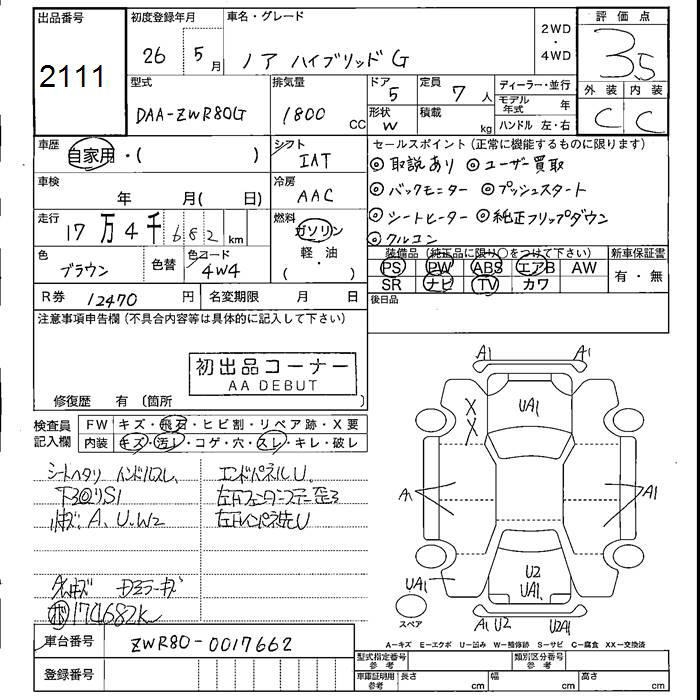 出品番号
2111
初度登録年月
26 5月
車名・グレード
ノア ハイブリッド G
2WD
・
4WD
評価点
3.5
外装 内装
C C
型式
DAA-ZWR80G
排気量
1800 CC
ドア
5
定員
7 人
形状
W
積載
kg
ディーラー・並行
モデル年式 年
ハンドル 左・右
車歴
自家用・( )
シフト
IAT
車検
年 月( 日)
冷房
AAC
走行
17万4千682 km
燃料
ガソリン
軽・油
( )
色
ブラウン
色替
色コード
4W4
R券 12470 円
名変期限 月 日
セールスポイント(正常に機能するものに限ります)
◎取説あり ◎ユーザー買取
◎バックモニター ◎プッシュスタート
◎シートヒーター ◎純正フリップダウン
◎クルコン
装備品(純正品に限り○をつけて下さい)
PS PW ABS エアB AW
SR ナビ TV カワ
新車保証書
有・無
後日品
注意事項申告欄(不具合内容等は具体的に記入して下さい)
初出品コーナー
AA DEBUT
修復歴 有 (箇所 )
検査員記入欄
FW キズ・飛石・ヒビ割・リペア跡・X要
内装 キズ・汚レ・コゲ・穴・スレ・キレ・破レ
シートヘタリ ハンドルスレ
エンドパネルU
A、U、W2
174682K
車台番号 ZWR80-0017662
登録番号
A1 A1
UA1
X
X
A A1
U2
UA1
UA1
スペア
A1 U2 U2A1
A-キズ E-エクボ U-凹み W-補修跡 S-サビ C-腐食 XX-交換済
型式指定番号 参考
類別区分番号 参考
車庫証明用 参考
長さ cm 幅 cm 高さ cm